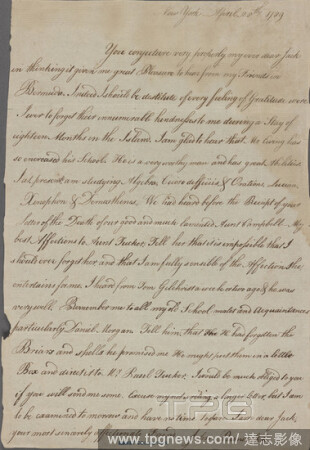 New York April 20th, 1789
Your conjecture very properly my ever dear Jack
in thinking it gives me great Pleasure to hear from my Friends in
Bermuda. Indeed I should be destitute of every feeling of Gratitude were
I ever to forget their innumerable kindnesses to me during a Stay of
eighteen Months on the Island. I am glad to hear that Mr
so increased his School. He is a very worthy man and has great
I at present am studying Algebra, Cicero de officiis & Orations,
Xenophon & Demosthenes. We had heard before the Receipt of your
letter of the Death of our good and much lamented Aunt Campbell. My
best Affections to Aunt Tucker, Tell her that it is impossible that I
should ever forget her and that I am fully sensible of the Affection she
entertains for me. I heard from Tom Gilchrist a week or two ago & he was
very well. Remember me to all my old School mates and Acquaintances
particularly Daniel Morgan Tell him, that he had forgotten the
and shells he promised me. He might put them in a little
Box and direct it to Mr. Tucker. I would be much obliged to you
if you will send me some. Excuse my not writing a longer Letter, but I am
to be examined to morrow and have no time to spare. I am dear Jack,
your most sincerely affectionate Friend
tpg images
www.tpgnews.com / 達志影像